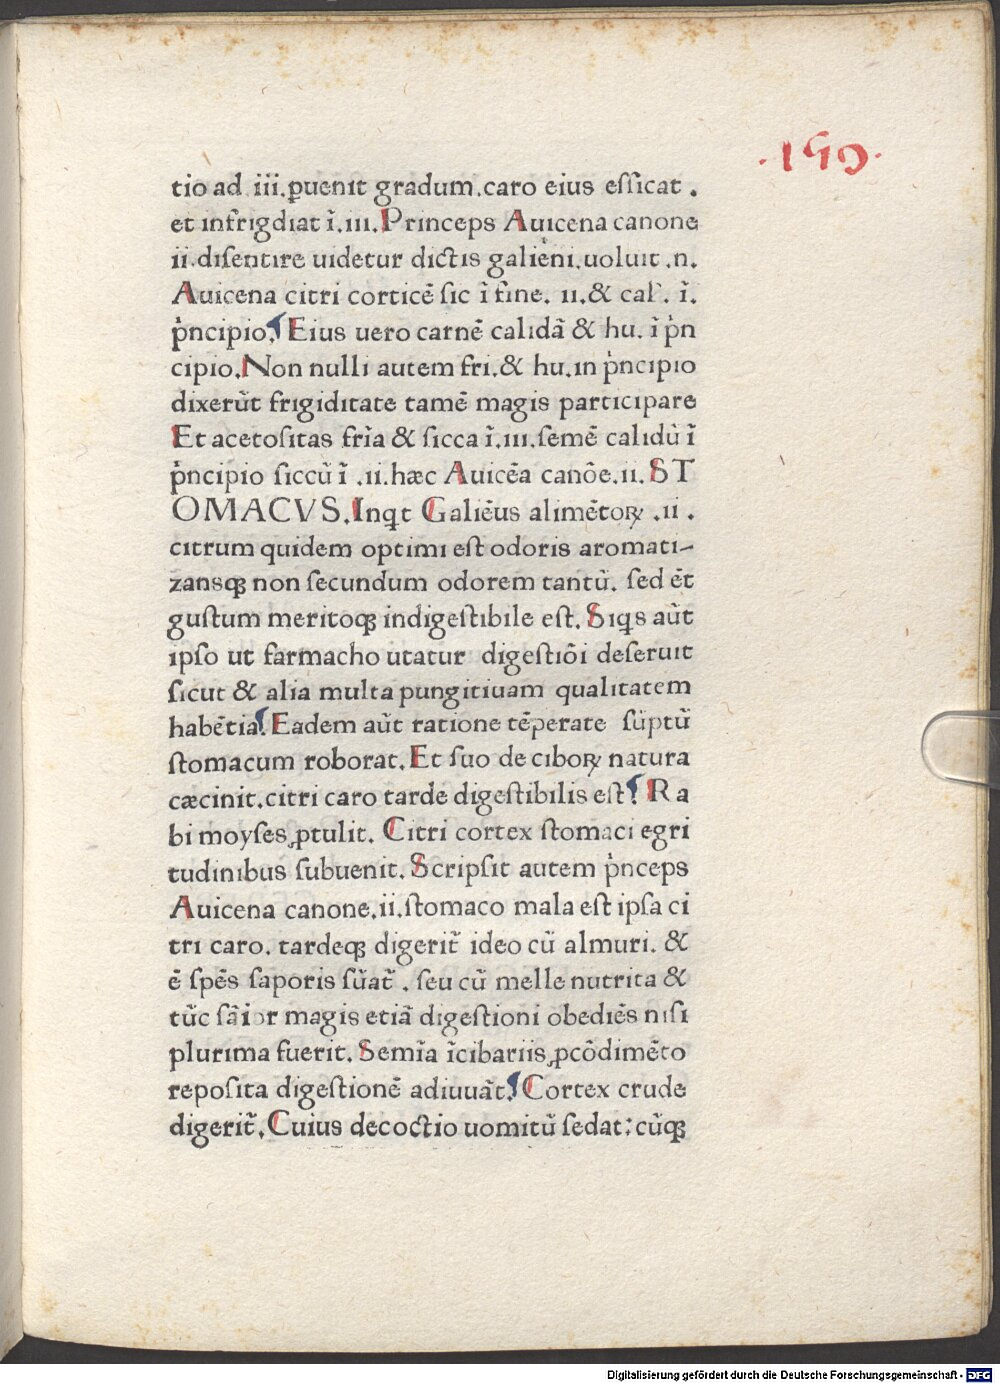 .159.
tio ad iii.ꝑuenit gradum.caro eius eſſicat .
et infrigdiat ī.iii.Princeps Auicena canone
ii.diſentire uidetur dictis galieni.uoluit .n.
Auicena citri corticē ſic ī fine. ii.& cal. ī.
p̍ncipio. Eius uero carnē calidā & hu. ī p̍n
cipio.Non nulli autem fri.& hu.in p̍ncipio
dixerūt frigiditate tamē magis participare
Et acetoſitas fri̅a & ſicca ī.iii.ſemē calidū ī
p̍ncipio ſiccū ī .ii.hæc Auicēa canōe.ii. ST
OMACVS.Inqt Galiēus alimētoꝝ .ii .
citrum quidem optimi eſt odoris aromati-
zansqꝫ non ſecundum odorem tantū. ſed ēt
guſtum meritoqꝫ indigeſtibile eſt. Siqs aūt
ipſo ut farmacho utatur digeſtiōi deſeruit
ſicut & alia multa pungitiuam qualitatem
habētia. Eadem aūt ratione tēperate ſūptū
ſtomacum roborat. Et ſuo de ciboꝝ natura
cæcinit.citri caro tarde digeſtibilis eſt. Ra
bi moyſes ꝓtulit. Citri cortex ſtomaci egri
tudinibus ſubuenit. Scripſit autem p̍nceps
Auicena canone.ii.ſtomaco mala eſt ipſa ci
tri caro. tardeqꝫ digerit̄ ideo cū almuri. &
ē ſpēs ſaporis ſūat̄ . ſeu cū melle nutrita &
tūc ſāior magis etiā digeſtioni obediēs niſi
plurima fuerit. Semīa īcibariis ꝓcōdimēto
repoſita digeſtionē adiuuāt. Cortex crude
digerit̄. Cuius decoctio uomitū ſedat: cūqꝫ
Digitalisierung gefördert durch die Deutsche Forschungsgemeinschaft - DFG